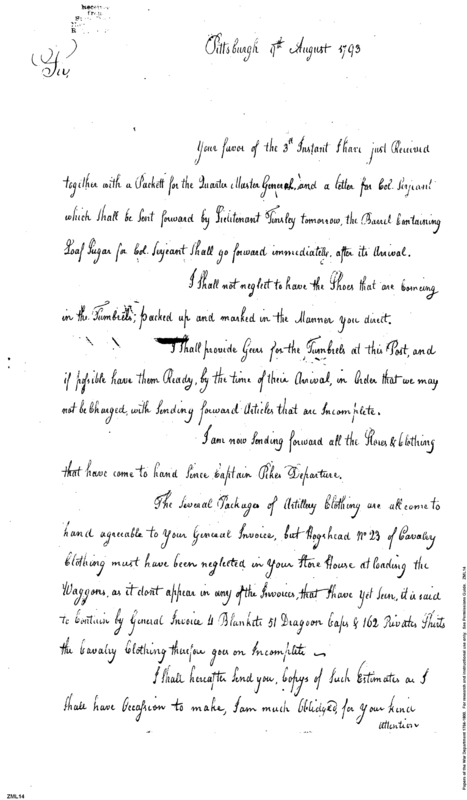 Received
from
Pittsburgh 9th August 1793
Sir,
Your favor of the 3d Instant I have just Received
together with a Packett for the Quarter Master General, and a letter for Col. Serjeant
which shall be sent forward by Lieutenant Tinsley tomorrow, the Barrel Containing
Loaf Sugar for Col. Serjeant shall go forward immediately, after its Arrival.
I shall not neglect to have the Shoes that are comeing
in the Tumbrels, packed up and marked in the Manner you direct.
I Shall provide Geers for the Tumbrels at this Post, and
if possible have them Ready, by the time of their Arrival, in Order that we may
not be Charged, with Sending forward Articles that are Incomplete.
I am now Sending forward all the Stores & Clothing
that have come to hand Since Captain Pikes Departure.
The Several Packages of Artillery Clothing are all come to
hand agreeable to Your General Invoice, but Hogshead No 23 of Cavalry
Clothing must have been neglected in Your Store House at loading the
Waggons, as it dont appear in any of the Invoices, that I have yet Seen, it is said
to Contain by General Invoice 4 Blankets 51 Dragoon Caps & 162 Privates Shirts
the Cavalry Clothing therefore goes on Incomplete
I Shall hereafter Send you, Copys of Such Estimates as I
Shall have Occassion to make, I am much Oblidged, for Your kind
attention
ZML14
Papers of the War Department 1784-1800. For research and instructional use only. See Permissions Guide. ZML14